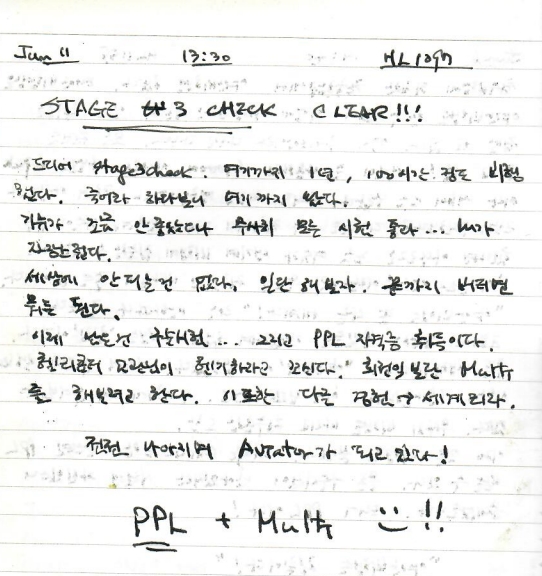 Jun 11 13:30 HL1097
STAGE #3 CHECK CLEAR!!!
드디어 stage3check. 여기까지 1년, 100시간 정도 비행
했다. 죽어라 하다보니 여기 까지 왔다.
기류가 조금 안좋았으나 무사히 모든 시험 통과... 내가
자랑스럽다.
세상에 안되는건 없다. 일단 해보자. 끝까지 버티면
뭐든 된다.
이제 남은건 구술시험... 그리고 PPL 자격증 취득이다.
헬리콥터 교관님이 헬기하라고 꼬신다. 회전익 보단 Multi
를 해보려고 한다. 이 또한 다른 경험 →
점점 나아지며 Aviator가 되고 있다!
PPL + Multi !!